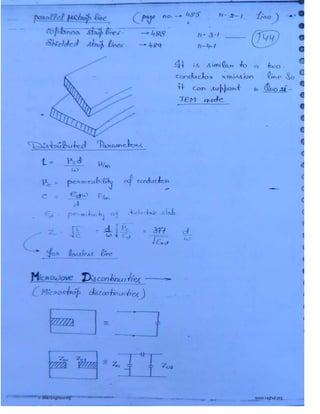 parallel µstrip line (page no. → 485 11-2-1 Liao)
Coplanar strip lines → 488 11-3-1
Shielded strip lines → 489 11-4-1
144
It is similar to a two
conductor xmission line so
it can support a Quasi-
TEM mode
Distributed Parameters
L = μc d / ω H/m
μc = permeability of conductor
C = εd ω / d F/m
εd - permittivity of dielectric slab
Z0 = √(L/C) = d/ω √(μc/εd) = 377/√εrd d/ω
for lossless line
Microwave Discontinuities →
(Microstrip discontinuities)
≡
Z01 Z02 ≡ Z01 Z02
www.raghul.org